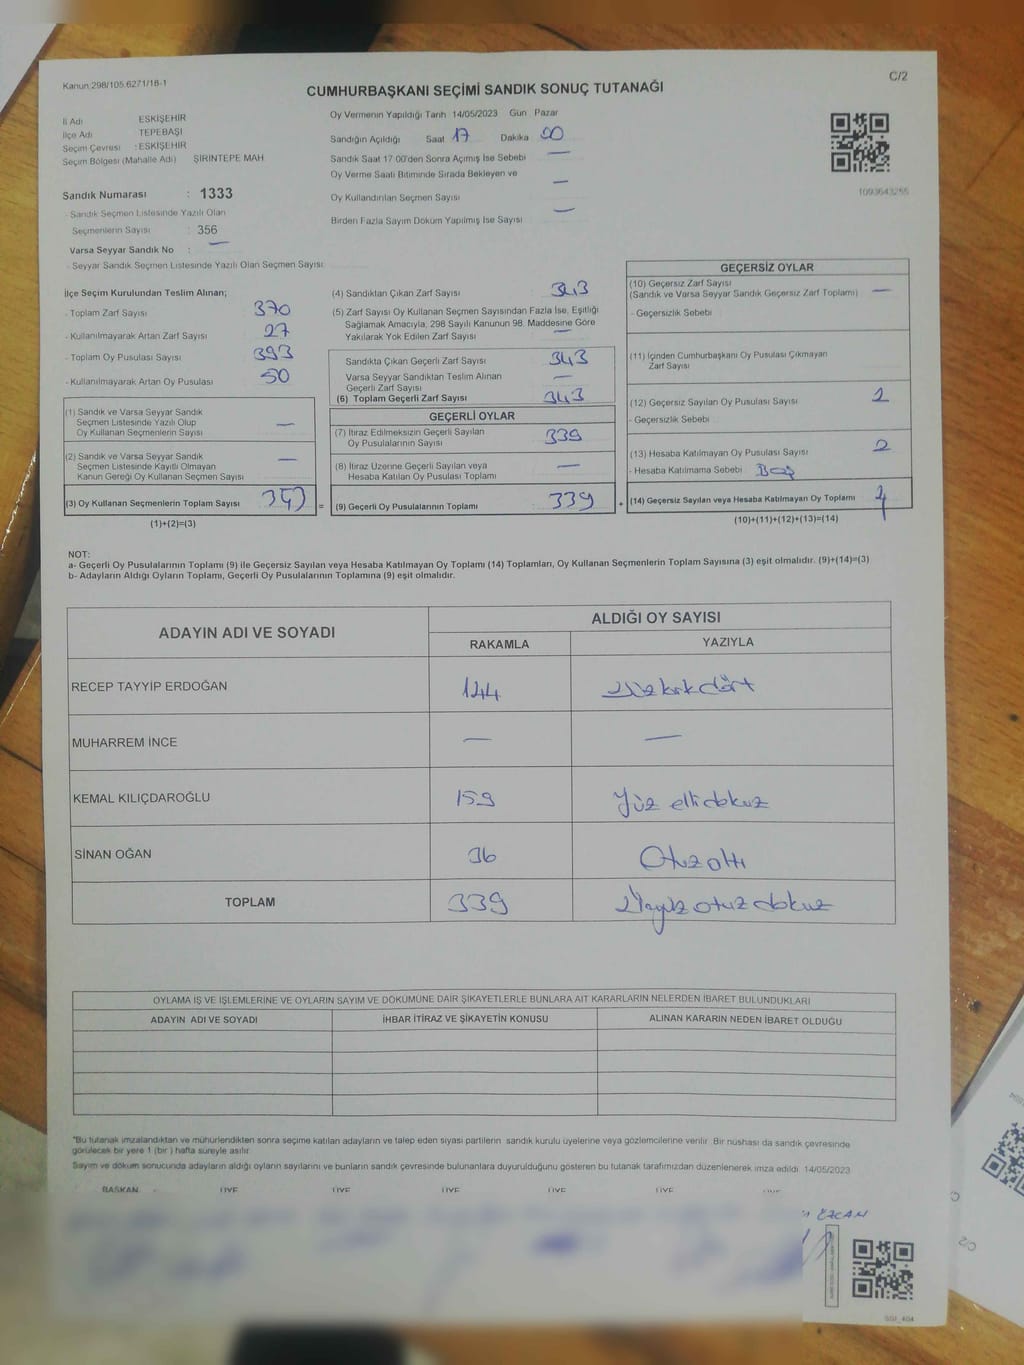 Kanun.298/105.6271/18-1
C/2
CUMHURBAŞKANI SEÇİMİ SANDIK SONUÇ TUTANAĞI
İl Adı ESKİŞEHİR
İlçe Adı TEPEBAŞI
Seçim Çevresi : ESKİŞEHİR
Seçim Bölgesi (Mahalle Adı) ŞİRİNTEPE MAH
Sandık Numarası : 1333
- Sandık Seçmen Listesinde Yazılı Olan
Seçmenlerin Sayısı : 356
Varsa Seyyar Sandık No : —
- Seyyar Sandık Seçmen Listesinde Yazılı Olan Seçmen Sayısı:
Oy Vermenin Yapıldığı Tarih 14/05/2023 Gün Pazar
Sandığın Açıldığı Saat 17 Dakika 00
Sandık Saat 17:00'den Sonra Açılmış İse Sebebi —
Oy Verme Saati Bitiminde Sırada Bekleyen ve
Oy Kullandırılan Seçmen Sayısı —
Birden Fazla Sayım Döküm Yapılmış İse Sayısı —
1093643255
İlçe Seçim Kurulundan Teslim Alınan;
- Toplam Zarf Sayısı 370
- Kullanılmayarak Artan Zarf Sayısı 27
- Toplam Oy Pusulası Sayısı 393
- Kullanılmayarak Artan Oy Pusulası 50
(1) Sandık ve Varsa Seyyar Sandık
Seçmen Listesinde Yazılı Olup
Oy Kullanan Seçmenlerin Sayısı —
(2) Sandık ve Varsa Seyyar Sandık
Seçmen Listesinde Kayıtlı Olmayan
Kanun Gereği Oy Kullanan Seçmen Sayısı —
(3) Oy Kullanan Seçmenlerin Toplam Sayısı 343 =
(1)+(2)=(3)
(4) Sandıktan Çıkan Zarf Sayısı 343
(5) Zarf Sayısı Oy Kullanan Seçmen Sayısından Fazla İse, Eşitliği
Sağlamak Amacıyla, 298 Sayılı Kanunun 98. Maddesine Göre
Yakılarak Yok Edilen Zarf Sayısı —
Sandıkta Çıkan Geçerli Zarf Sayısı 343
Varsa Seyyar Sandıktan Teslim Alınan
Geçerli Zarf Sayısı —
(6) Toplam Geçerli Zarf Sayısı 343
GEÇERLİ OYLAR
(7) İtiraz Edilmeksizin Geçerli Sayılan
Oy Pusulalarının Sayısı 339
(8) İtiraz Üzerine Geçerli Sayılan veya
Hesaba Katılan Oy Pusulası Toplamı —
(9) Geçerli Oy Pusulalarının Toplamı : 339 +
GEÇERSİZ OYLAR
(10) Geçersiz Zarf Sayısı
(Sandık ve Varsa Seyyar Sandık Geçersiz Zarf Toplamı) —
- Geçersizlik Sebebi
(11) İçinden Cumhurbaşkanı Oy Pusulası Çıkmayan
Zarf Sayısı
(12) Geçersiz Sayılan Oy Pusulası Sayısı 2
- Geçersizlik Sebebi
(13) Hesaba Katılmayan Oy Pusulası Sayısı 2
- Hesaba Katılmama Sebebi Boş
(14) Geçersiz Sayılan veya Hesaba Katılmayan Oy Toplamı 4
(10)+(11)+(12)+(13)=(14)
NOT:
a- Geçerli Oy Pusulalarının Toplamı (9) ile Geçersiz Sayılan veya Hesaba Katılmayan Oy Toplamı (14) Toplamları, Oy Kullanan Seçmenlerin Toplam Sayısına (3) eşit olmalıdır. (9)+(14)=(3)
b- Adayların Aldığı Oyların Toplamı, Geçerli Oy Pusulalarının Toplamına (9) eşit olmalıdır.
ADAYIN ADI VE SOYADI
ALDIĞI OY SAYISI
RAKAMLA YAZIYLA
RECEP TAYYİP ERDOĞAN 144 Yüz kırk dört
MUHARREM İNCE — —
KEMAL KILIÇDAROĞLU 159 Yüz elli dokuz
SİNAN OĞAN 36 Otuz altı
TOPLAM 339 Üçyüz otuz dokuz
OYLAMA İŞ VE İŞLEMLERİNE VE OYLARIN SAYIM VE DÖKÜMÜNE DAİR ŞİKAYETLERLE BUNLARA AİT KARARLARIN NELERDEN İBARET BULUNDUKLARI
ADAYIN ADI VE SOYADI İHBAR İTİRAZ VE ŞİKAYETİN KONUSU ALINAN KARARIN NEDEN İBARET OLDUĞU
"Bu tutanak imzalandıktan ve mühürlendikten sonra seçime katılan adayların ve talep eden siyasi partilerin sandık kurulu üyelerine veya gözlemcilerine verilir. Bir nüshası da sandık çevresinde
görülecek bir yere 1 (bir) hafta süreyle asılır.
Sayım ve döküm sonucunda adayların aldığı oyların sayılarını ve bunların sandık çevresinde bulunanlara duyurulduğunu gösteren bu tutanak tarafımızdan düzenlenerek imza edildi. 14/05/2023
BAŞKAN ÜYE ÜYE ÜYE ÜYE ÜYE
ÖZCAN
C/2